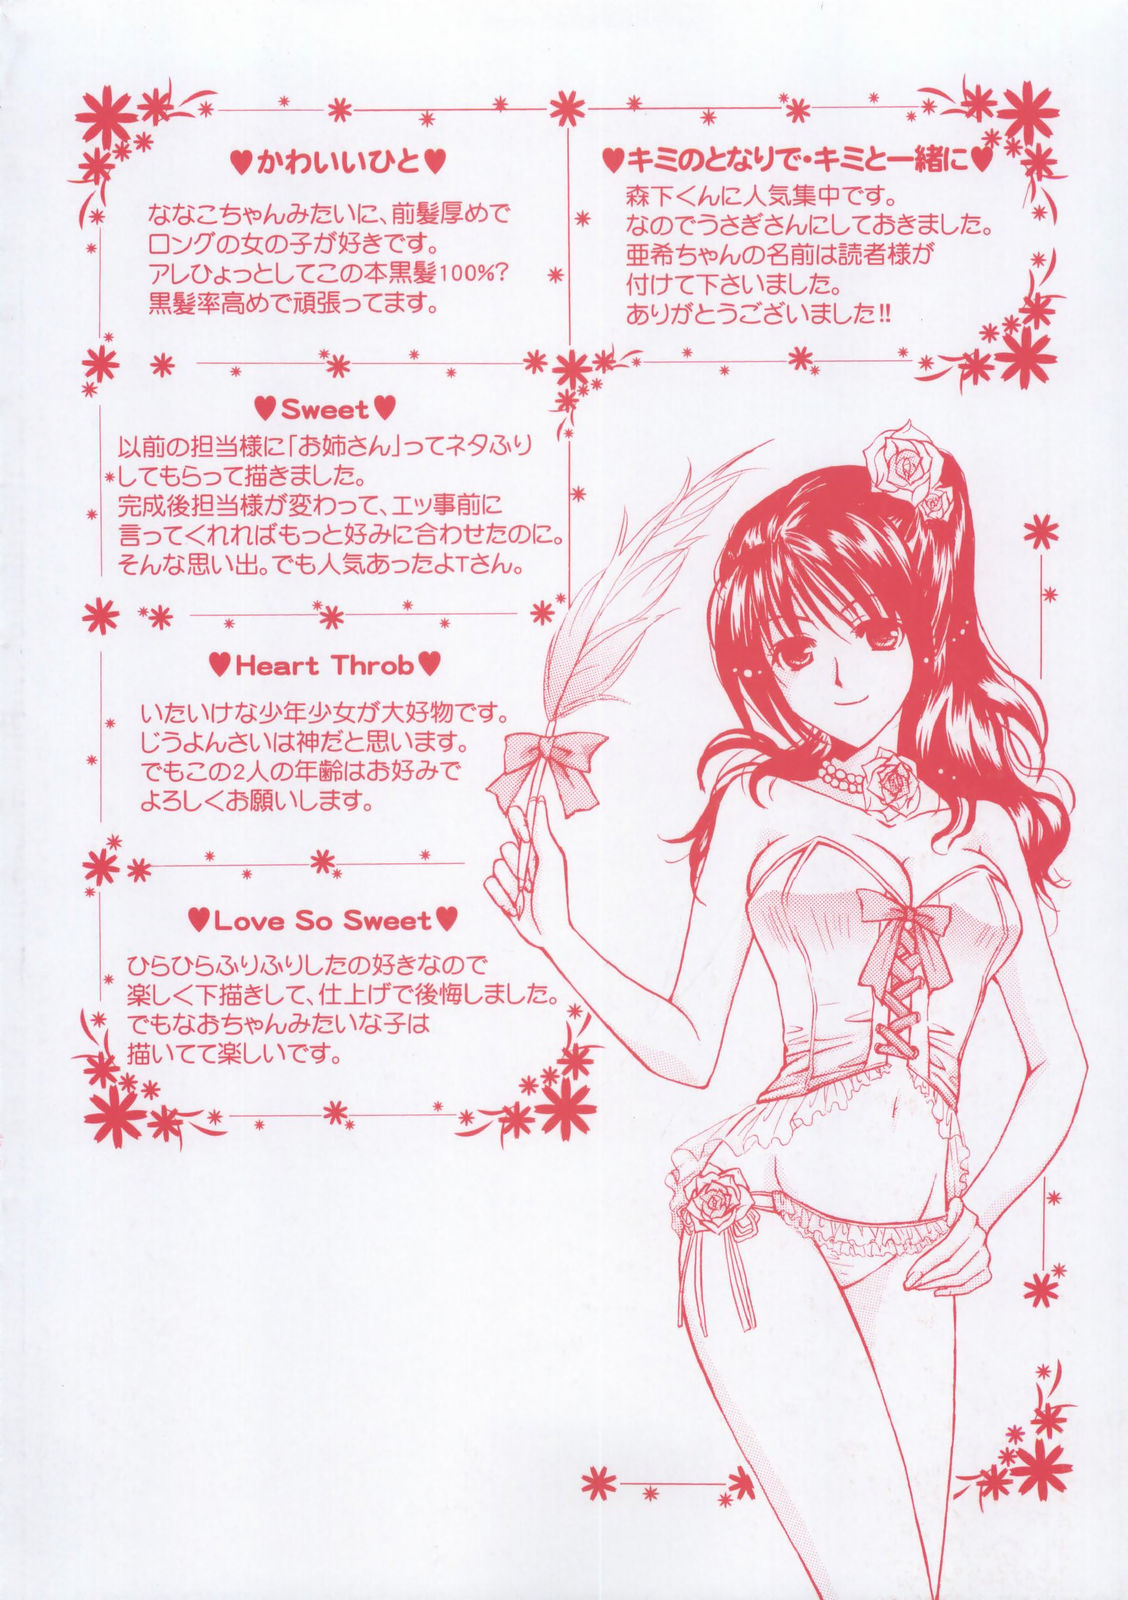 ♥かわいいひと♥
ななこちゃんみたいに、前髪厚めで
ロングの女の子が好きです。
アレひょっとしてこの本黒髪100%?
黒髪率高めで頑張ってます。
♥キミのとなりで・キミと一緒に♥
森下くんに人気集中です。
なのでうさぎさんにしておきました。
亜希ちゃんの名前は読者様が
付けて下さいました。
ありがとうございました!!
♥Sweet♥
以前の担当様に「お姉さん」ってネタふり
してもらって描きました。
完成後担当様が変わって、エッ事前に
言ってくれればもっと好みに合わせたのに。
そんな思い出。でも人気あったよTさん。
♥Heart Throb♥
♥Love So Sweet♥
ひらひらふりふりしたの好きなので
楽しく下描きして、仕上げで後悔しました。
でもなおちゃんみたいな子は
描いてて楽しいです。